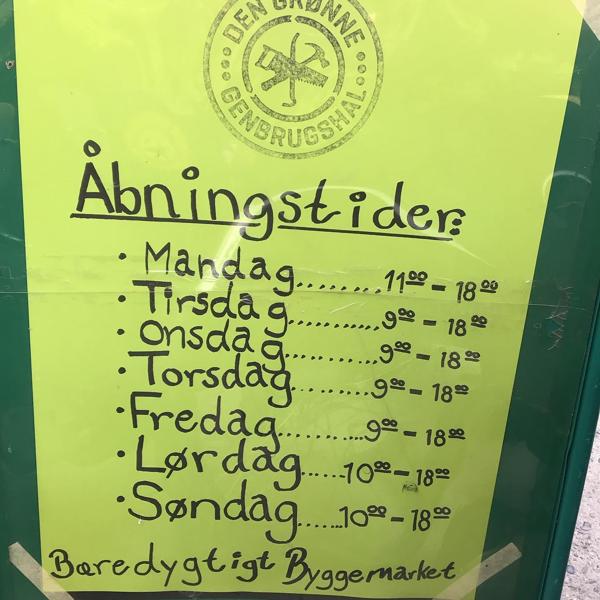 DEN GRØNNE
GENBRUGSHAL
Åbningstider:
· Mandag.........11⁰⁰ - 18⁰⁰
· Tirsdag...........9⁰⁰ - 18⁰⁰
· Onsdag..........9⁰⁰ - 18⁰⁰
· Torsdag..........9⁰⁰ - 18⁰⁰
· Fredag...........9⁰⁰ - 18⁰⁰
· Lørdag......10⁰⁰ - 18⁰⁰
· Søndag......10⁰⁰ - 18⁰⁰
Bæredygtigt Byggemarket